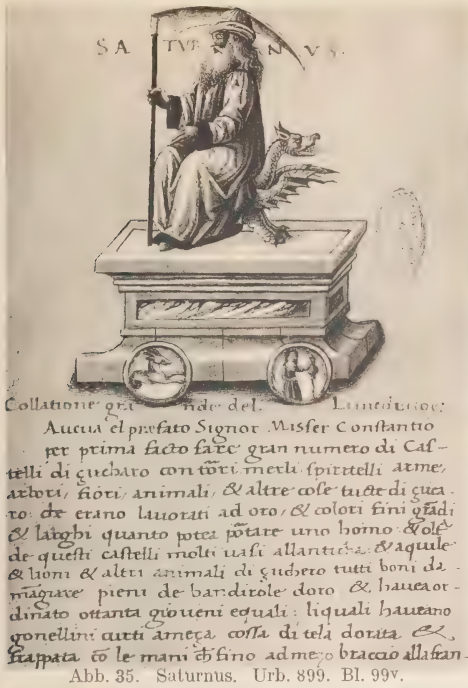 SATURNUS
Collatione grande del Lunedi
Aueua el prefato Signor Misser Constantio
per prima facto fare gran numero di Cas-
telli di zucharo con tori merli spiritelli arme,
arbori, fiori, animali, & altre cose tucte di zuca
ro: che erano lauorati ad oro, & colori fini grādi
& larghi quanto potea pōtare uno homo: & oltē
de questi castelli molti uasi allanticha: & aquile
& lioni & altri animali di zuchero tutti boni da
māgiare pieni de bandirole doro & haueaor-
dinato ottanta gioueni equali: liquali haueano
gonellini curti ameza cossa di tela dorata &
frappata cō le mani chfino admezo braccio allafran-
Abb. 35. Saturnus. Urb. 899. Bl. 99v.